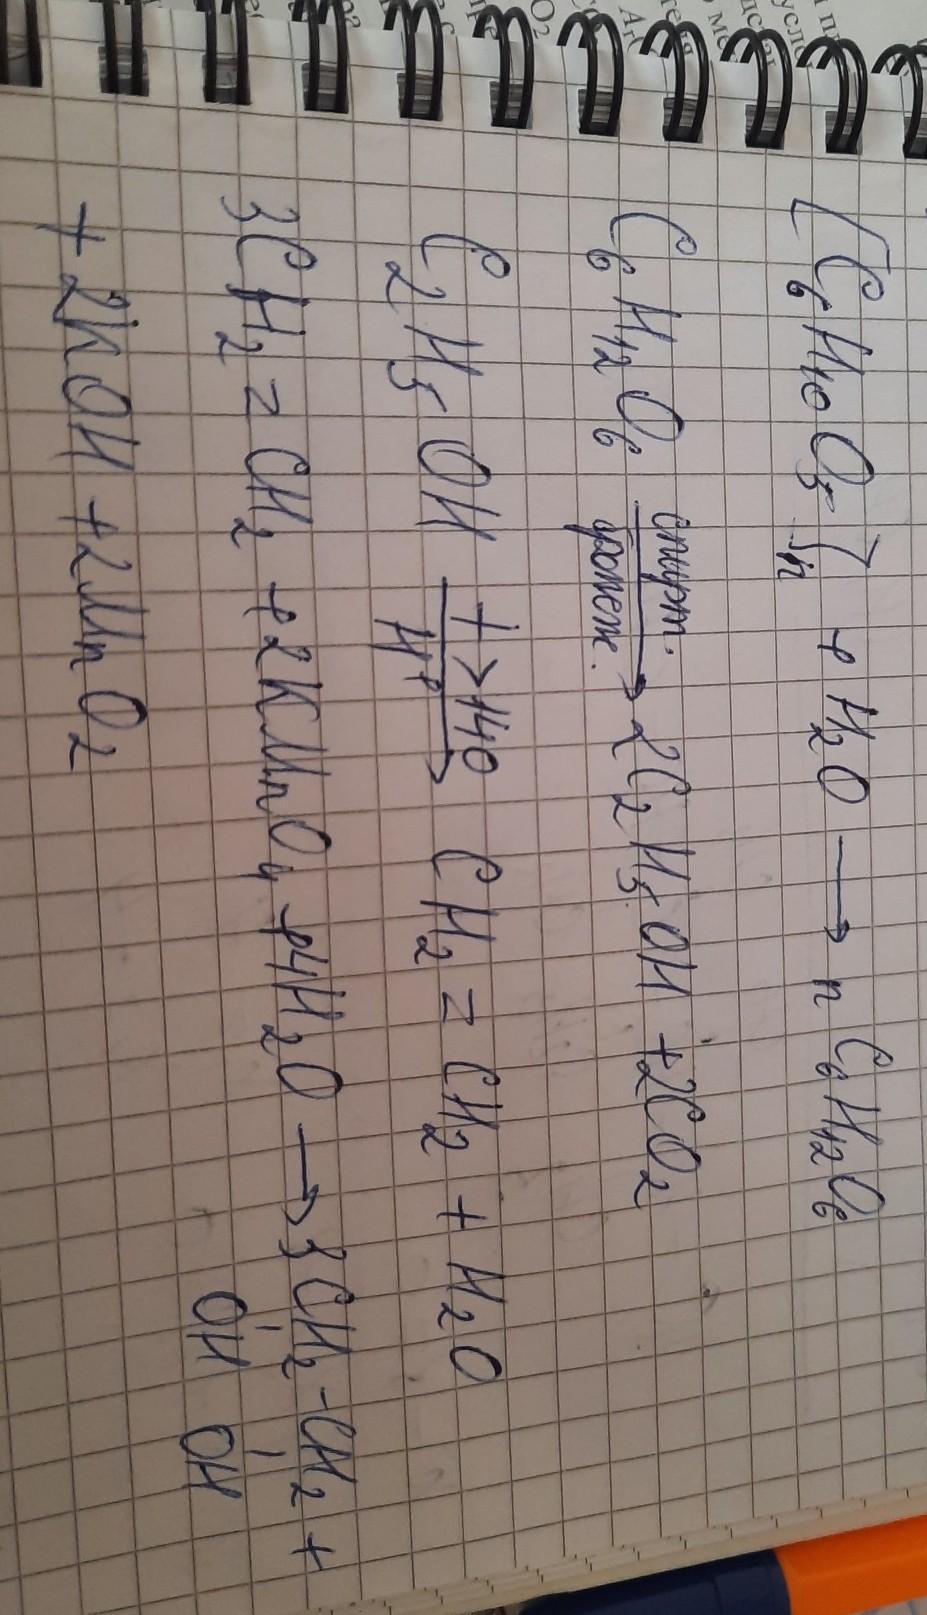 [C6H10O5]n + H2O → n C6H12O6
C6H12O6 спирт. брожен. → 2C2H5OH + 2CO2
C2H5OH t>140 H+ → CH2 = CH2 + H2O
3CH2 = CH2 + 2KMnO4 + 4H2O → 3CH2 - CH2 +
OH OH
+ 2KOH + 2MnO2